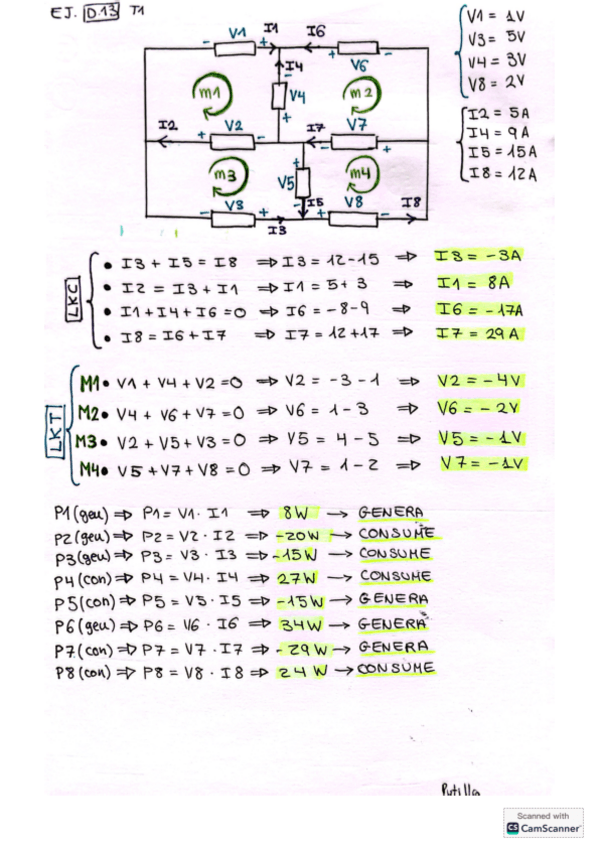 EJ. D.13 T1
V1 = 1V
V3 = 5V
V4 = 3V
V8 = 2V
I2 = 5A
I4 = 9A
I5 = 15A
I8 = 12A
V1 I1 I6
- + + -
V6
I4
-
m1 V4 m2
+
I2 V2 I7 V7
+ - - +
+
m3 V5 m4
-
V3 I5 V8 I8
- + - +
I3
LKC
• I3 + I5 = I8 ⇒ I3 = 12-15 ⇒ I3 = -3A
• I2 = I3 + I1 ⇒ I1 = 5+3 ⇒ I1 = 8A
• I1 + I4 + I6 = 0 ⇒ I6 = -8-9 ⇒ I6 = -17A
• I8 = I6 + I7 ⇒ I7 = 12+17 ⇒ I7 = 29A
LKT
M1• V1 + V4 + V2 = 0 ⇒ V2 = -3 -1 ⇒ V2 = -4V
M2• V4 + V6 + V7 = 0 ⇒ V6 = 1-3 ⇒ V6 = -2V
M3• V2 + V5 + V3 = 0 ⇒ V5 = 4-5 ⇒ V5 = -1V
M4• V5 + V7 + V8 = 0 ⇒ V7 = 1-2 ⇒ V7 = -1V
P1(geu) ⇒ P1 = V1 · I1 ⇒ 8W → GENERA
P2(geu) ⇒ P2 = V2 · I2 ⇒ -20W → CONSUME
P3(geu) ⇒ P3 = V3 · I3 ⇒ -15W → CONSUME
P4(con) ⇒ P4 = V4 · I4 ⇒ 27W → CONSUME
P5(con) ⇒ P5 = V5 · I5 ⇒ -15W → GENERA
P6(geu) ⇒ P6 = V6 · I6 ⇒ 34W → GENERA
P7(con) ⇒ P7 = V7 · I7 ⇒ -29W → GENERA
P8(con) ⇒ P8 = V8 · I8 ⇒ 24W → CONSUME
Scanned with
CS CamScanner